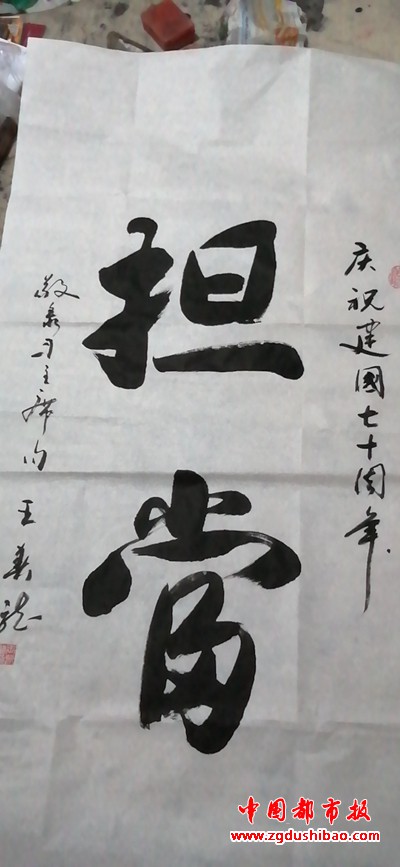 庆祝建國七十周年
担當
敬录习主席句
王
中国都市报
www.zgdushibao.com